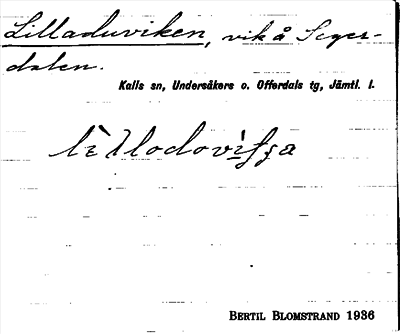 Lilladuviken, vik å Seger-
dalen.
Kalls sn, Undersåkers o. Offerdals tg, Jämtl. l.
BERTIL BLOMSTRAND 1936